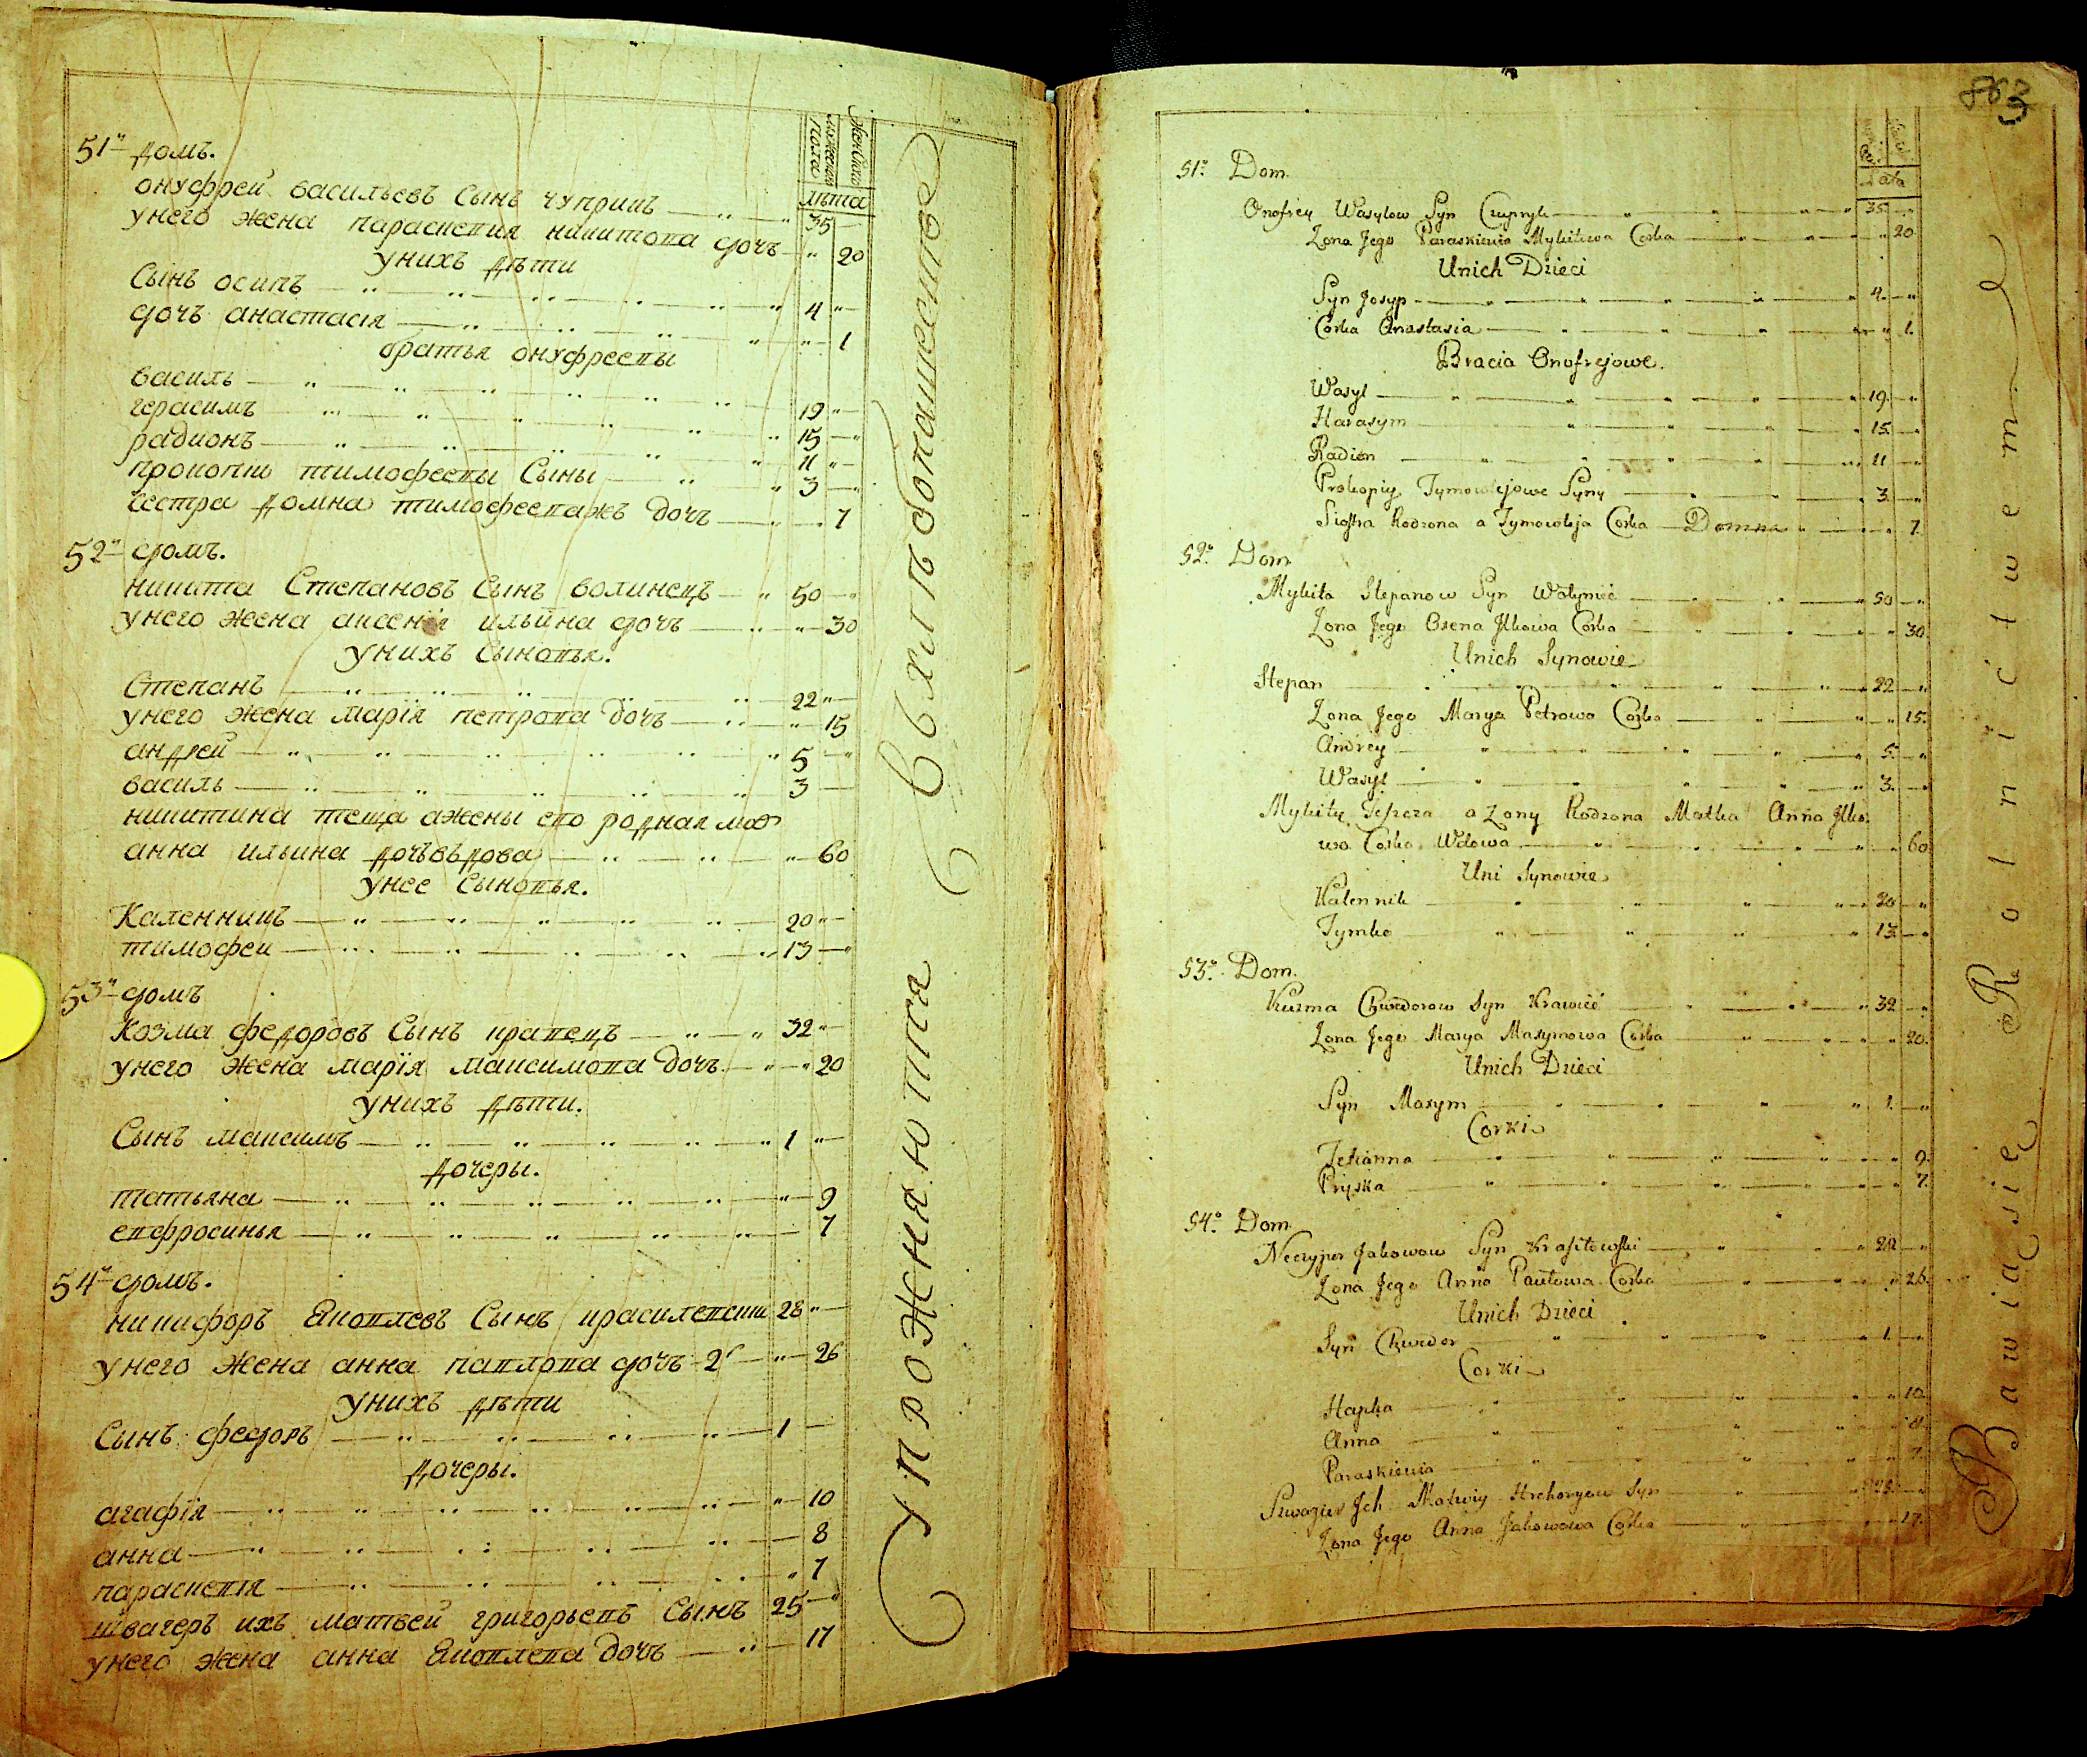 мужеска
пола
женска
лѣта
51й домъ.
онуфрей васильевъ Сынъ чуприкъ 35
унего жена параскевия никитова дочъ 20
унихъ дѣти
Сынъ осипъ 4
дочъ анастасія 1
братья онуфреевы
василь 19
герасимъ 15
радионъ 11
прокопій тимофеевы Сыны 3
сестра домна тимофеева дочъ 7
52й домъ.
никита Степановъ Сынъ волинецъ 50
унего жена аксенія ильина дочъ 30
унихъ Сыновья.
Степанъ 22
унего жена марія петрова дочъ 15
андрей 5
василь 3
никитина теща ажены его родная мат
анна ильина дочъ вдова 60
унее Сыновья.
Каленникъ 20
тимофей 13
53й домъ
Козма федоровъ Сынъ кравецъ 32
унего жена марія максимова дочъ 20
унихъ дѣти.
Сынъ максимъ 1
дочеры.
татьяна 9
евфросинья 7
54й домъ.
никифоръ Яковлевъ Сынъ красилевски 28
унего жена анна павлова дочъ 2г 26
унихъ дѣти
Сынъ федоръ 1
дочеры.
агафія 10
анна 8
параскевія 7
швагеръ ихъ матвей григорьевъ Сынъ 25
унего жена анна Яковлева дочъ 17
Упрожняются Вхлѣбопашестве
863
Lata
51o Dom.
Onofrey Wasylow Syn Czupryk 35
Zona Jego Paraskiewia Mykitowa Corka 20
Unich Dzieci
Syn Josyp 4
Corka Anastasia 1
Bracia Onofrejowe.
Wasyl 19
Harasym 15
Radion 11
Prokopiy Tymowiejowe Syny 3
Siostra Rodzona a Tymowieja Corka Domna 7
52o Dom
Mykita Stepanow Syn Wołyniec 50
Zona Jego Oxena Jlkowa Corka 30
Unich Synowie
Stepan 22
Zona Jego Marya Petrowa Corka 15
Andrey 5
Wasyl 3
Mykity Teszcza a Zony Rodzona Matka Anna Jlko:
wa Corka Wdowa 60
Uni Synowie
Kalennik 20
Tymko 13
53o Dom.
Kuzma Chwedorow Syn Krawiec 32
Zona Jego Marya Maxymowa Corka 20
Unich Dzieci
Syn Maxym 1
Corki
Tetianna 9
Pryska 7
54o Dom
Neczypor Jakowow Syn Krasitowski 28
Zona Jego Anna Pawłowa Corka 26
Unich Dzieci
Syn Chwedor 1
Corki
Hapka 10
Anna 8
Paraskiewia 7
Szwagier Jch Matwiy Hrehoryow Syn 25
Zona Jego Anna Jakowowa Corka 17
Bawiąsię Rolnictwem